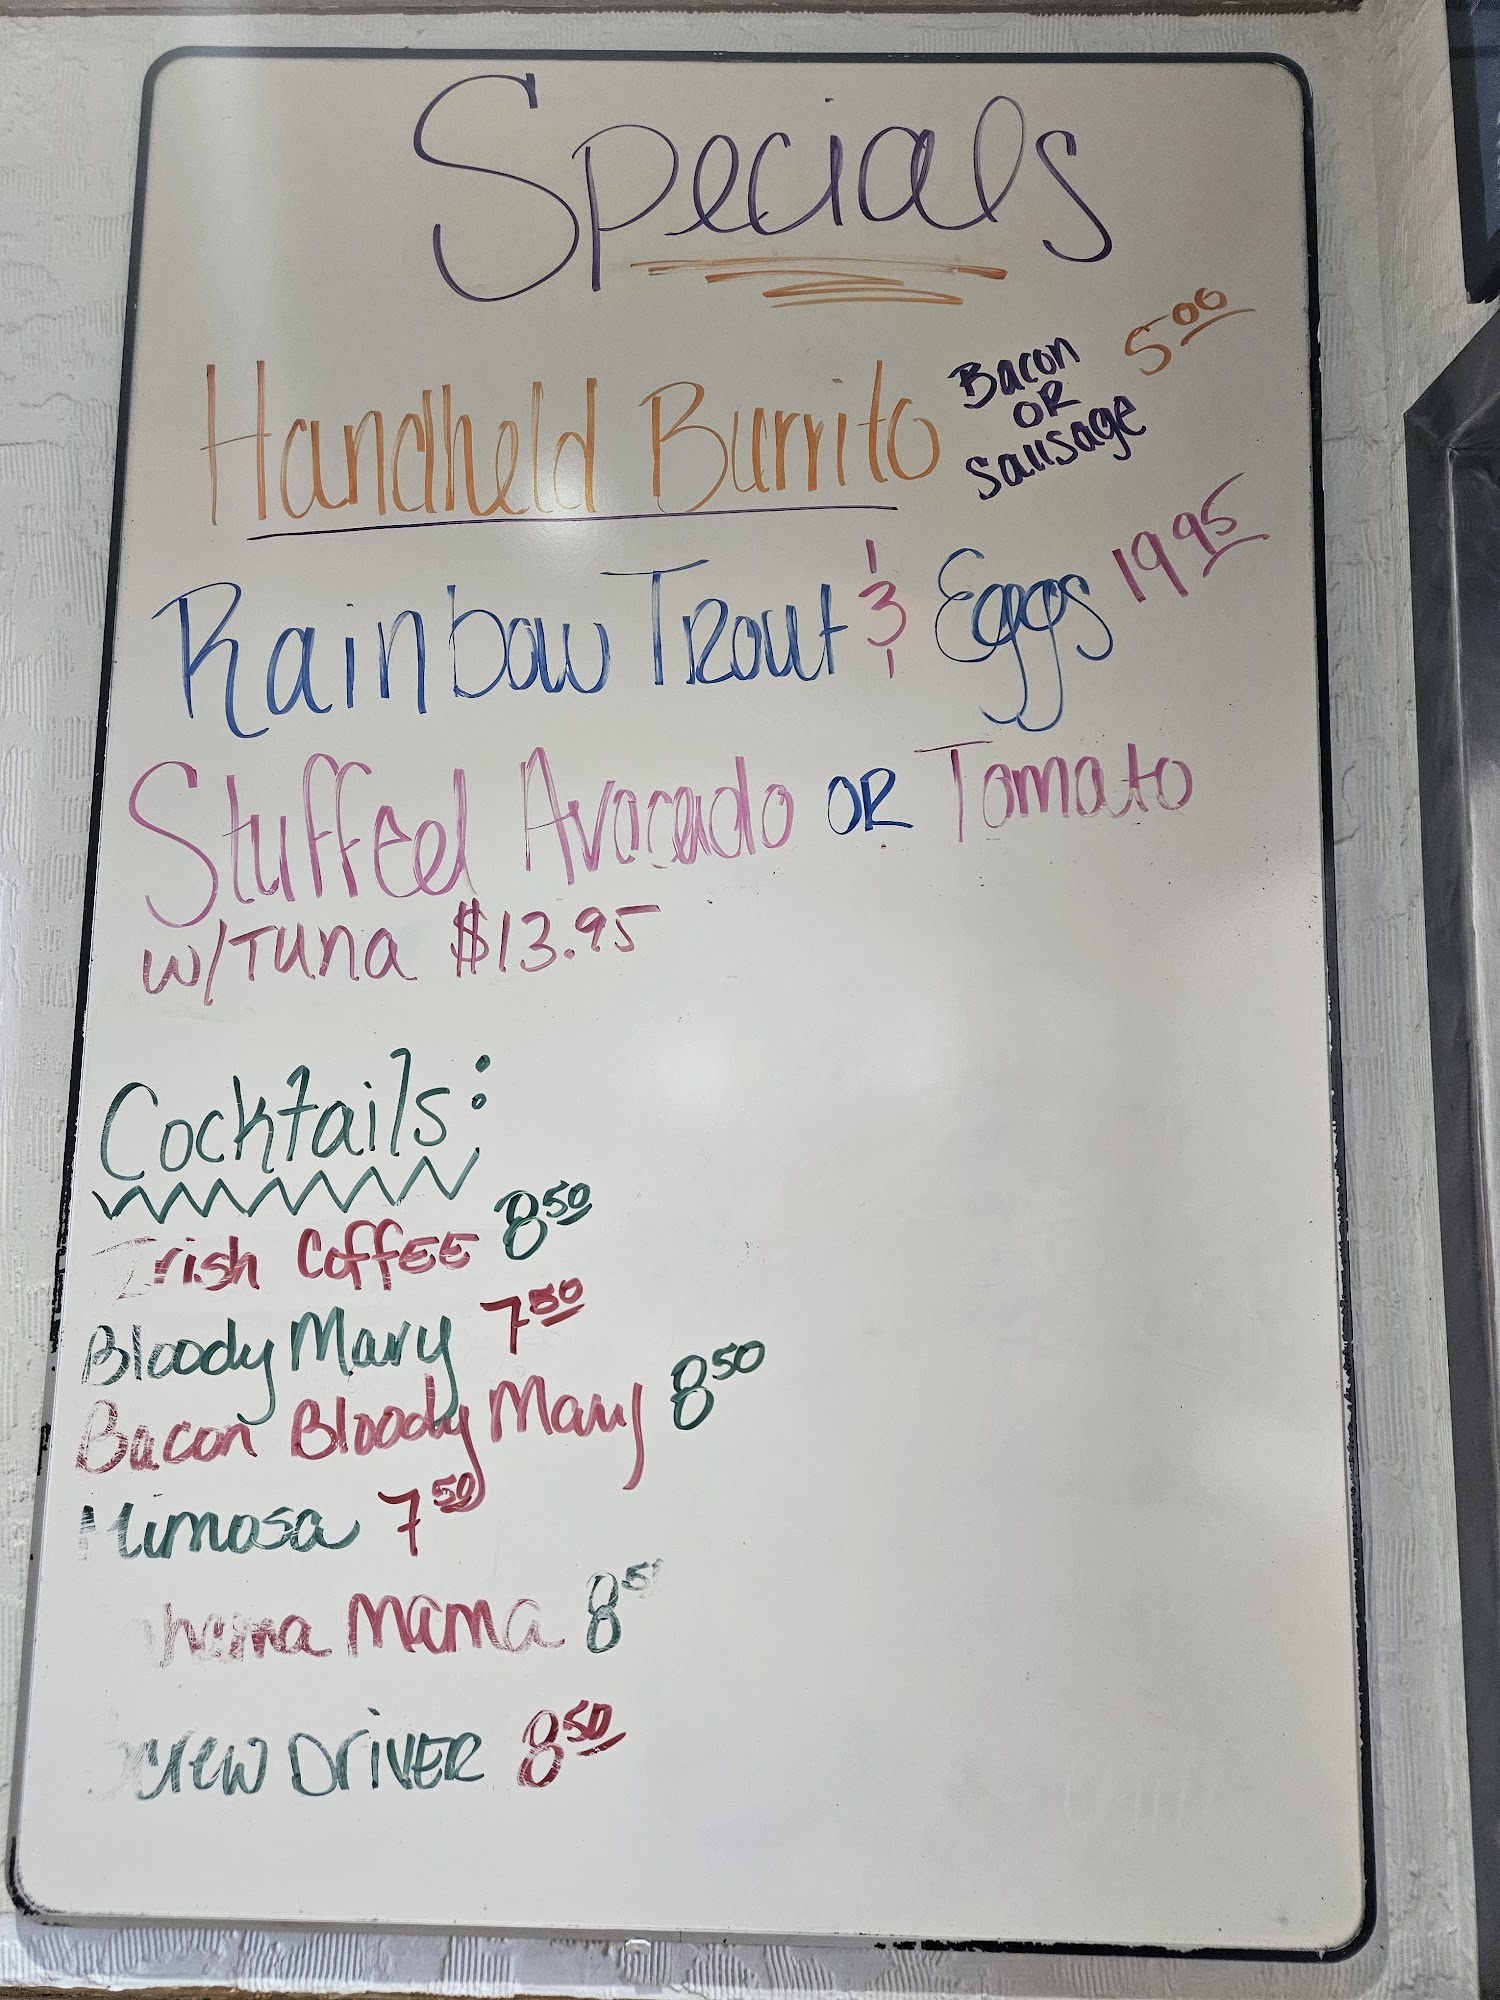 Specials
Handheld Burrito Bacon OR Sausage 5.00
Rainbow Trout & Eggs 19.95
Stuffed Avocado OR Tomato
w/Tuna $13.95
Cocktails:
Irish Coffee 8.50
Bloody Mary 7.50
Bacon Bloody Mary 8.50
Mimosa 7.50
Mama 8.5
Screw Driver 8.50